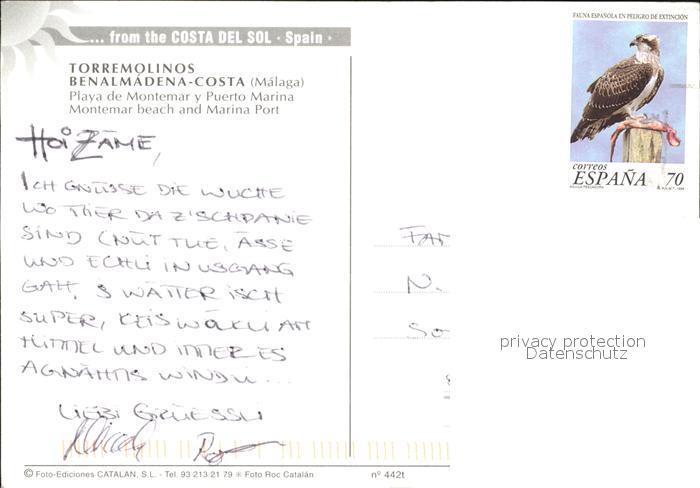 ... from the COSTA DEL SOL · Spain ·
TORREMOLINOS
BENALMÁDENA-COSTA (Málaga)
Playa de Montemar y Puerto Marina
Montemar beach and Marina Port
HOI ZÄME,
ICH GNÜSSE DIE WUCHE
WO MER DA Z'SCHPANIE
SIND (NÜT TUE, ÄSSE
UND ECHLI IN USGANG
GAH, S WÄTTER ISCH
SUPER, KEIS WÖLKLI AM
HIMMEL UND IMMER ES
AGNÄHMS WINDLI...
LIEBI GRÜESSLI
FAUNA ESPAÑOLA EN PELIGRO DE EXTINCIÓN
correos
ESPAÑA 70
AGUILA PESCADORA
FAM
N.
SO
privacy protection
Datenschutz
© Foto-Ediciones CATALAN, S.L. - Tel. 93 213 21 79 ✳ Foto Roc Catalán
nº 442t